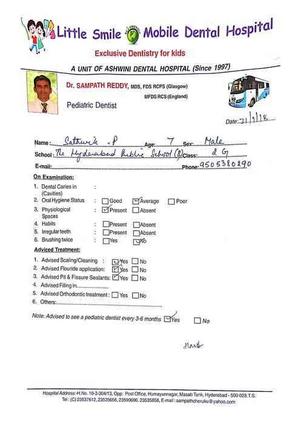 Little Smile Mobile Dental Hospital
Exclusive Dentistry for kids
A UNIT OF ASHWINI DENTAL HOSPITAL (Since 1997)
Dr. SAMPATH REDDY, MDS, FDS RCPS (Glasgow)
MFDS RCS (England)
Pediatric Dentist
Date: 21/9/18
Name: Sathwik .P Age: 7 Sex: Male
School: The Hyderabad Public School (R) Class: 2 G
E-mail: Phone: 9505380290
On Examination:
1. Dental Caries in :
(Cavities)
2. Oral Hygiene Status : Good Average Poor
3. Physiological : Present Absent
Spaces
4. Habits : Present Absent
5. Irregular teeth : Present Absent
6. Brushing twice : Yes No
Adviced Treatment:
1. Advised Scaling/Cleaning : Yes No
2. Advised Flouride application: Yes No
3. Advised Pit & Fissure Sealants: Yes No
4. Advised Filling in
5. Advised Orthodontic treatment : Yes No
6. Others:
Note: Advised to see a pediatric dentist every 3-6 months Yes No
Hospital Address: H.No. 10-2-304/13, Opp. Post Office, Humayunnagar, Masab Tank, Hyderabad - 500 028.T.S.
Tel: (C) 23537612, 23535658, 23599696, 23535858, E-mail: sampathcheruku@yahoo.com